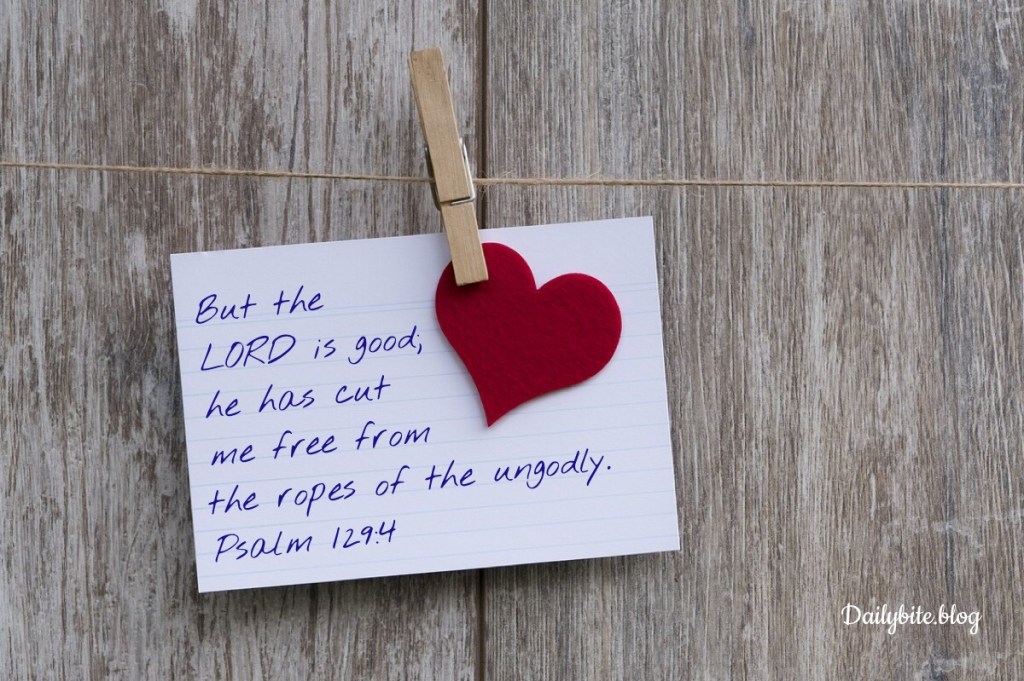 But the
LORD is good;
he has cut
me free from
the ropes of the ungodly.
Psalm 129:4
Dailybite.blog